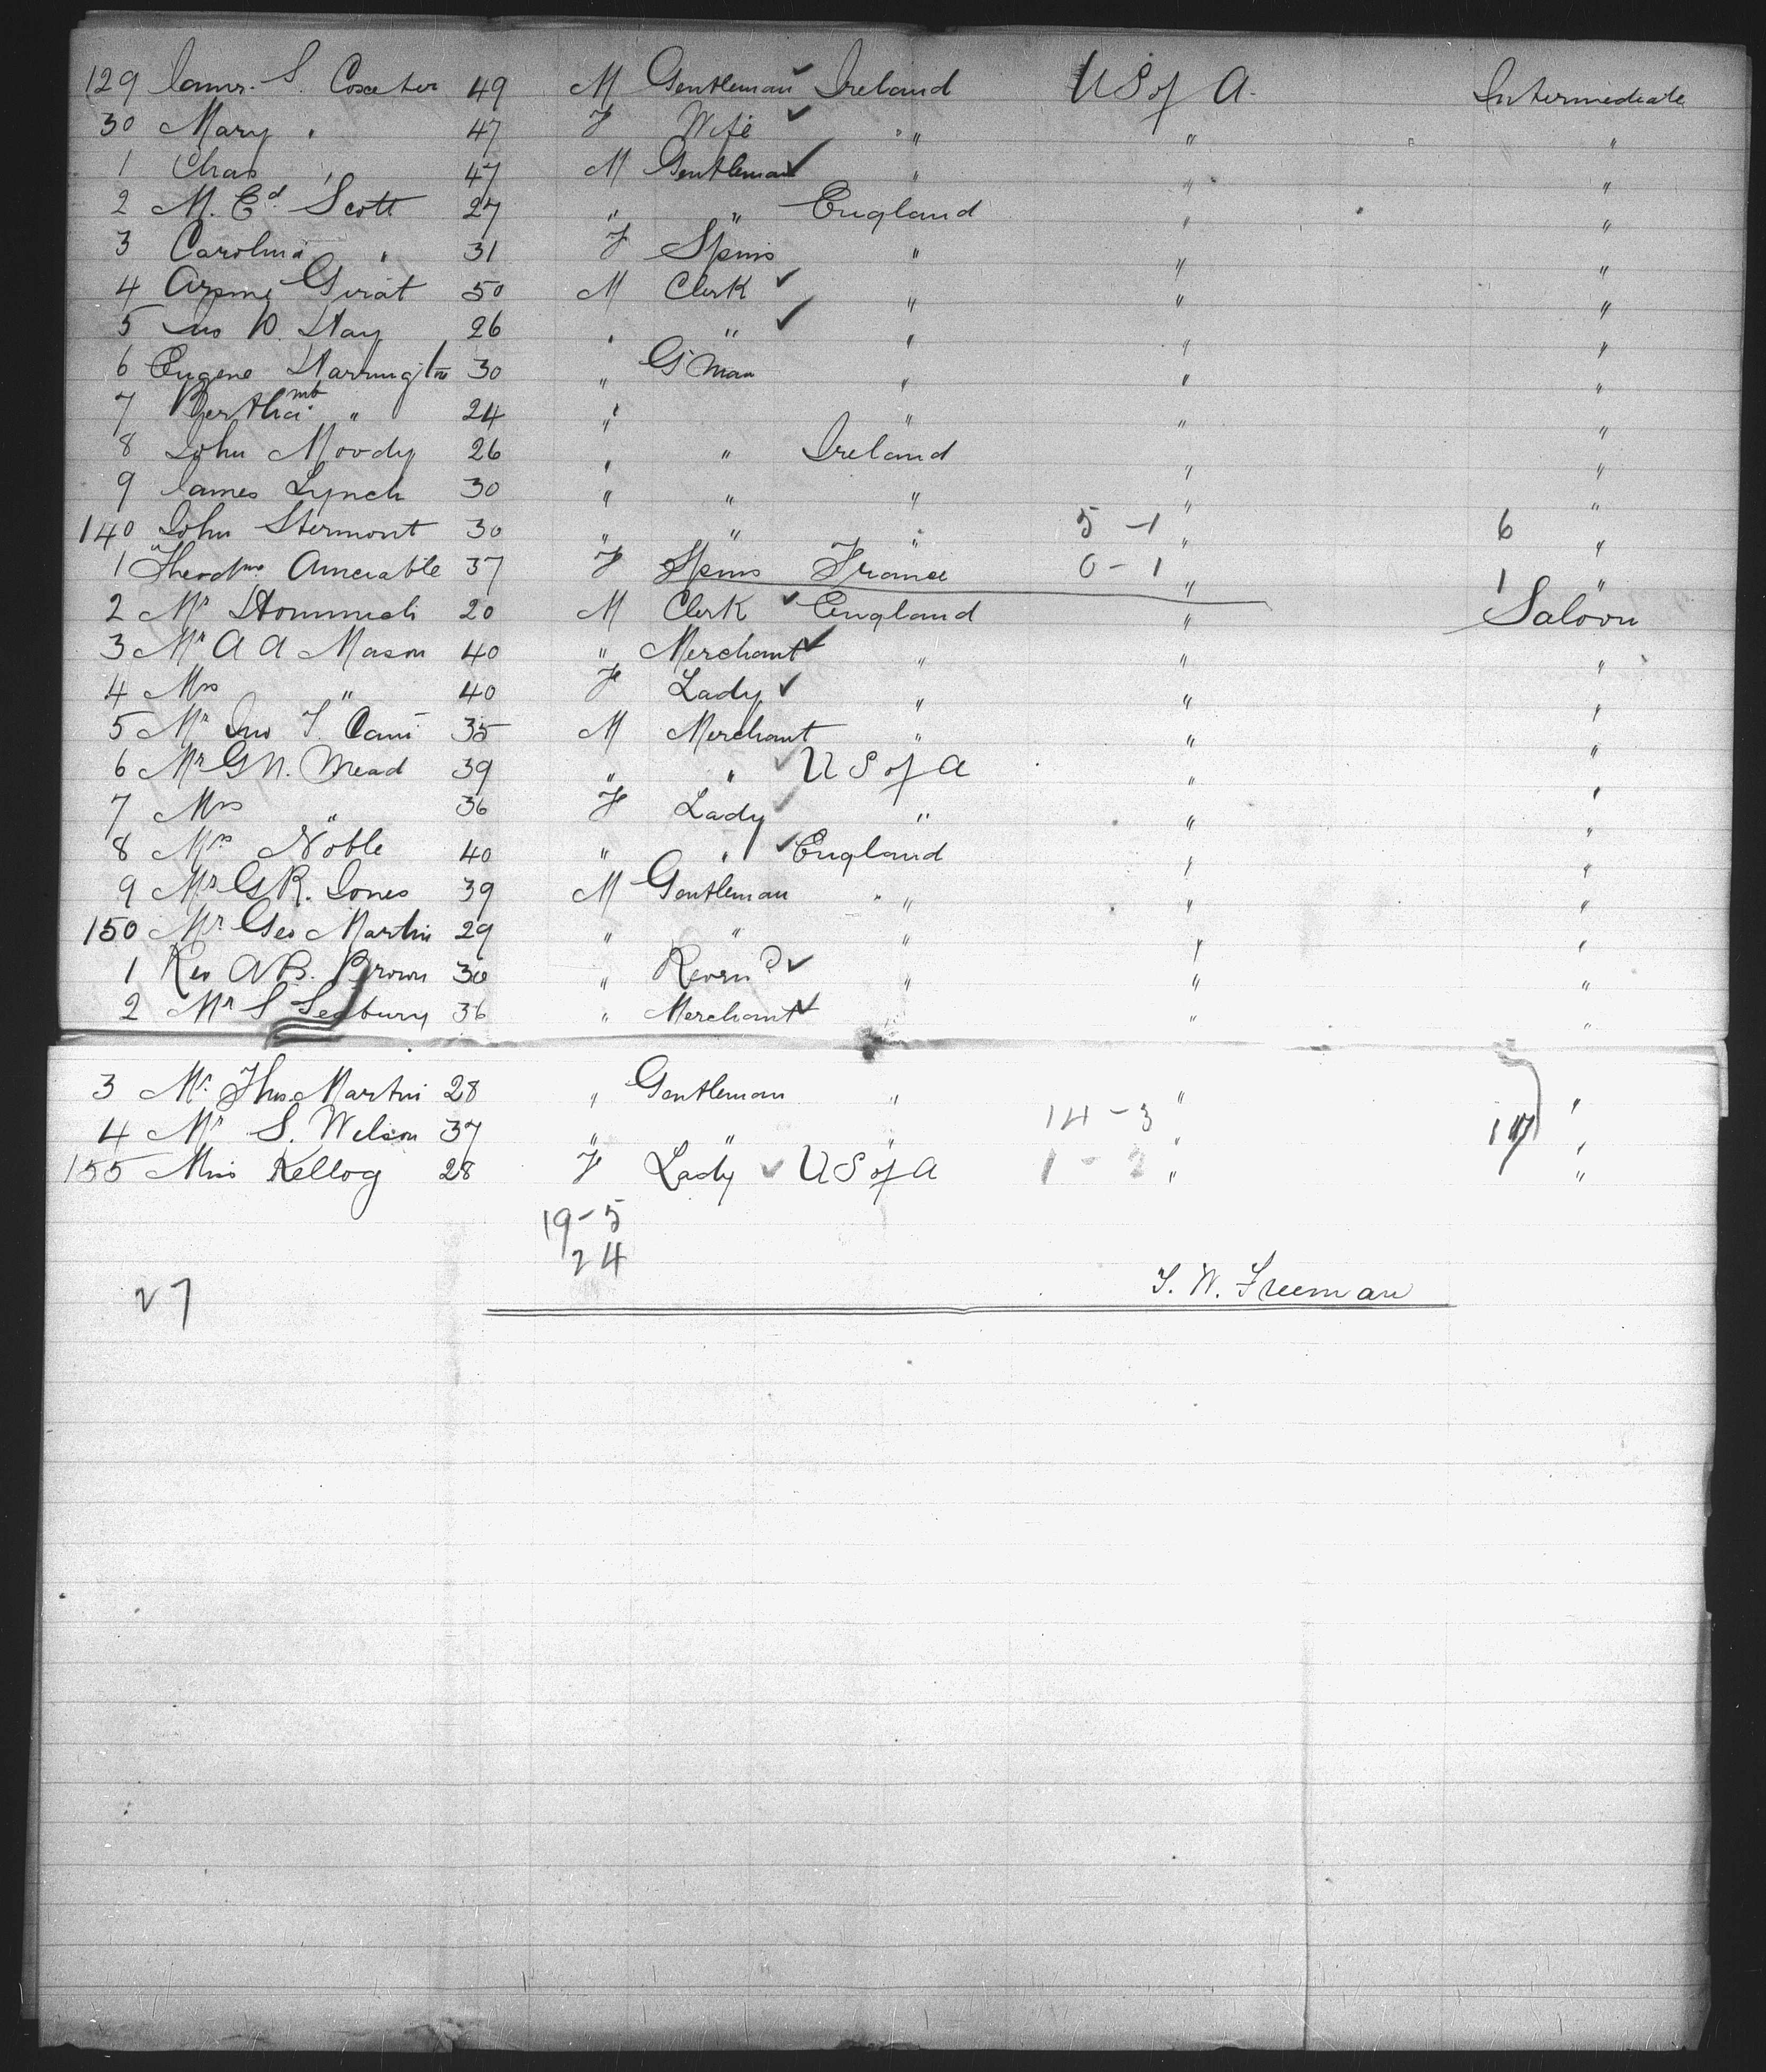 129 James S. Coxeter 49 M Gentleman Ireland U S of A. Intermediate
30 Mary " 47 F Wife " " "
1 Chas " 47 M Gentleman " " "
2 M. Ed Scott 27 " " England " "
3 Carolina " 31 F Spins " " "
4 Girat 50 M Clerk " " "
5 Jno D. Hay 26 " " " " "
6 Eugene Harrington 30 " G'man " " "
7 Bertha " 24 " " " "
8 John Moody 26 " " Ireland " "
9 James Lynch 30 " " " " "
140 John Stermont 30 " " " 5 - 1 " 6 "
1 Amerable 37 F Spins France 0 - 1 " 1 "
2 Mr 20 M Clerk England " Saloon
3 Mr A A Mason 40 " Merchant " " "
4 Mrs " 40 F Lady " " "
5 Mr Jno T. 35 M Merchant " " "
6 Mr G N. Mead 39 " " U S of A " "
7 Mrs " 36 F Lady " " "
8 Mrs Noble 40 " " England " "
9 Mr G R. Jones 39 M Gentleman " " "
150 Mr Geo Martin 29 " " " " "
1 Rev A B. Brown 30 " Revrnd " " "
2 Mr S Seabury 36 " Merchant " "
3 Mr. Thos Martin 28 " Gentleman " " "
4 Mr S. Welson 37 " " " 14 - 3 " "
155 Miss Kellog 28 F Lady U S of A 1 - 2 " "
19 - 5
24
T. W. Freeman
27